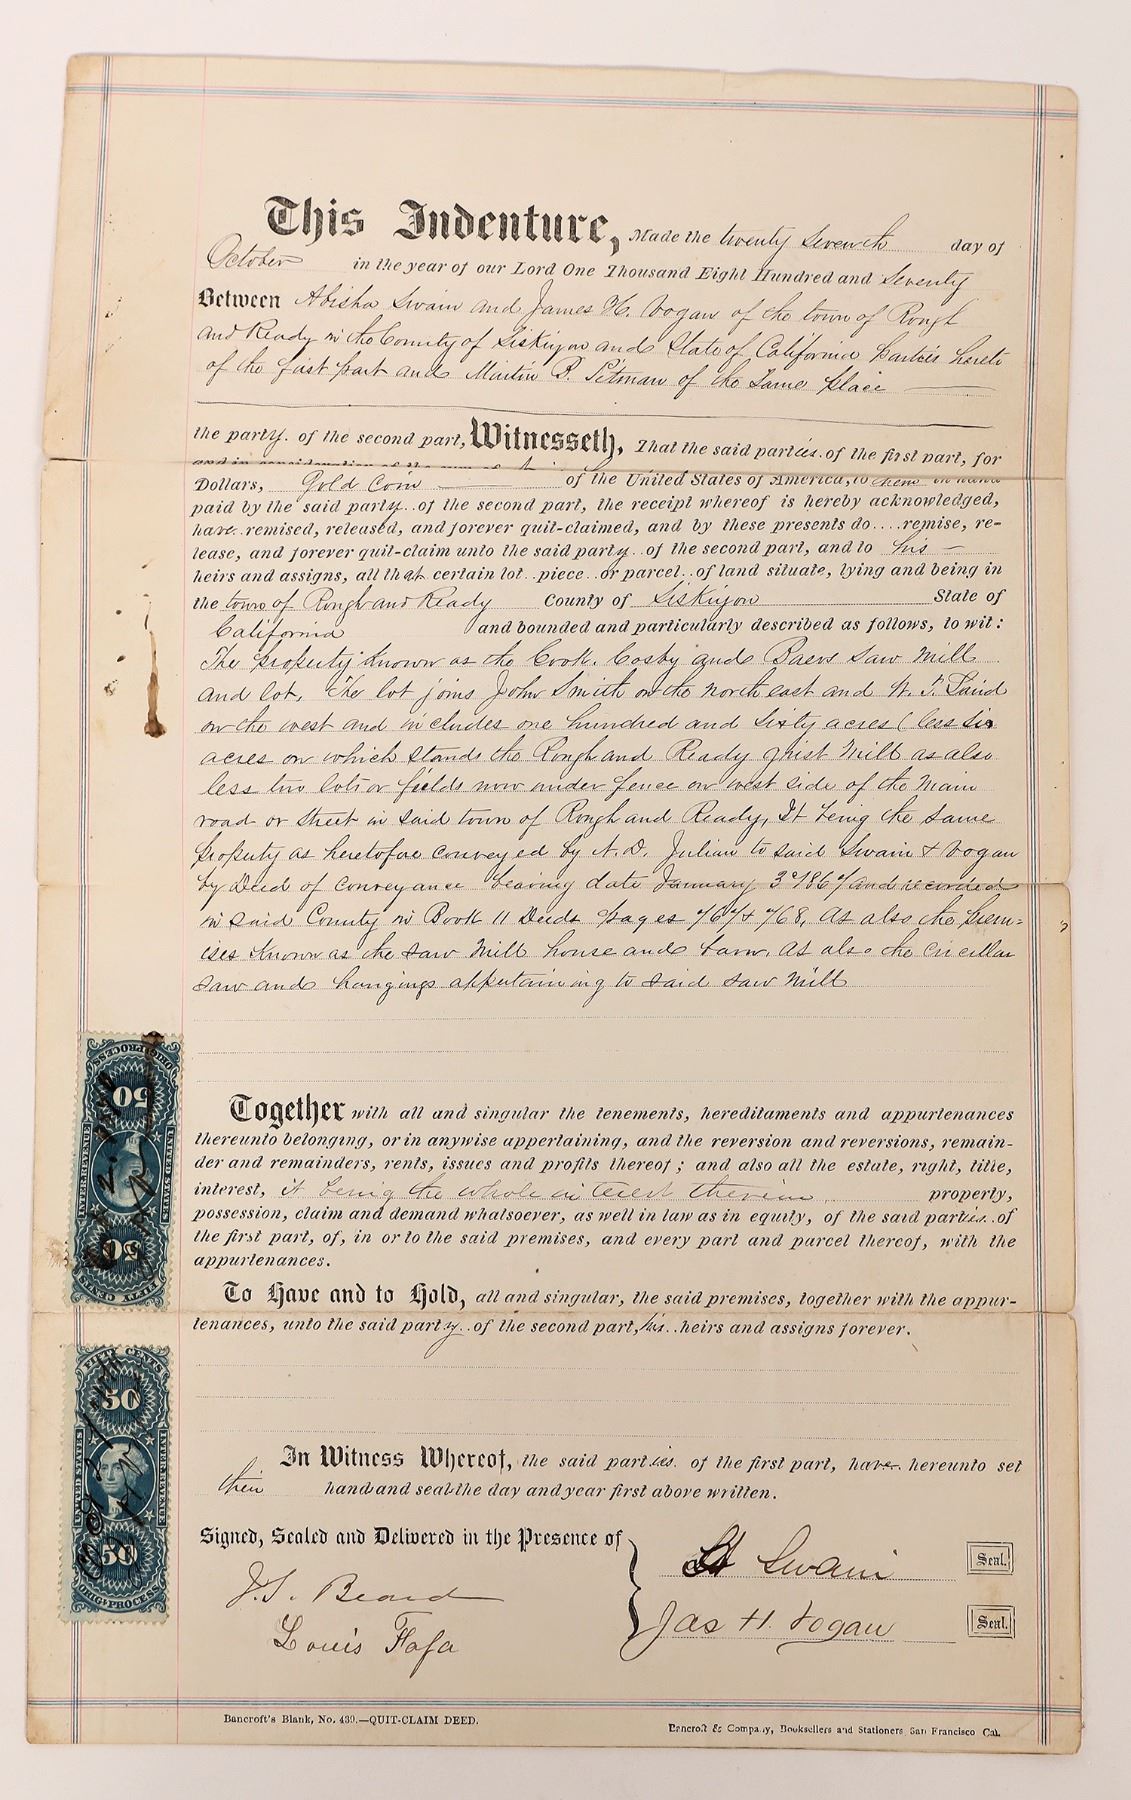 This Indenture, Made the twenty seventh day of
October in the year of our Lord One Thousand Eight Hundred and Seventy
Between Abisha Swain and James H. Vogan of the town of Rough
and Ready in the County of Siskiyou and State of California parties hereto
of the first part and Martin P. Pitman of the Same place
the party of the second part, Witnesseth, That the said parties of the first part, for
and in consideration of the sum of
Dollars, Gold Coin of the United States of America, to them in hand
paid by the said party of the second part, the receipt whereof is hereby acknowledged,
have remised, released, and forever quit-claimed, and by these presents do remise, re-
lease, and forever quit-claim unto the said party of the second part, and to his
heirs and assigns, all that certain lot piece or parcel of land situate, lying and being in
the town of Rough and Ready County of Siskiyou State of
California and bounded and particularly described as follows, to wit:
The property known as the Cook. Cosby and Baers Saw Mill
and lot, The lot joins John Smith on the north east and
on the west and includes one hundred and sixty acres (less six
acres on which stands the Rough and Ready grist Mill as also
less two lots or fields now under fence on west side of the Main
road or street in said town of Rough and Ready, It being the same
property as heretofore conveyed by A. D. Julian to said Swain & Vogan
by Deed of conveyance bearing date January and recorded
in said County in Book 11 Deeds pages As also the prem=
ises known as the saw Mill house and barn. As also the circular
saw and hangings appertaining to said saw Mill
Together with all and singular the tenements, hereditaments and appurtenances
thereunto belonging, or in anywise appertaining, and the reversion and reversions, remain-
der and remainders, rents, issues and profits thereof; and also all the estate, right, title,
interest, it being the whole interest therein property,
possession, claim and demand whatsoever, as well in law as in equity, of the said parties of
the first part, of, in or to the said premises, and every part and parcel thereof, with the
appurtenances.
To Have and to Hold, all and singular, the said premises, together with the appur-
tenances, unto the said party of the second part, his heirs and assigns forever.
In Witness Whereof, the said parties of the first part, have hereunto set
their hand and seal the day and year first above written.
Signed, Sealed and Delivered in the Presence of
Swain Seal.
J. S. Beard
Jas H. Vogan Seal.
Louis Fafa
Bancroft's Blank, No. 439.—QUIT-CLAIM DEED.
Bancroft & Company, Booksellers and Stationers, San Francisco Cal.
ORIG. PROCESS
50
UNITED STATES
INTER. REVENUE
50
FIFTY CENTS
FIFTY CENTS
50
UNITED STATES
INTER. REVENUE
50
ORIG. PROCESS